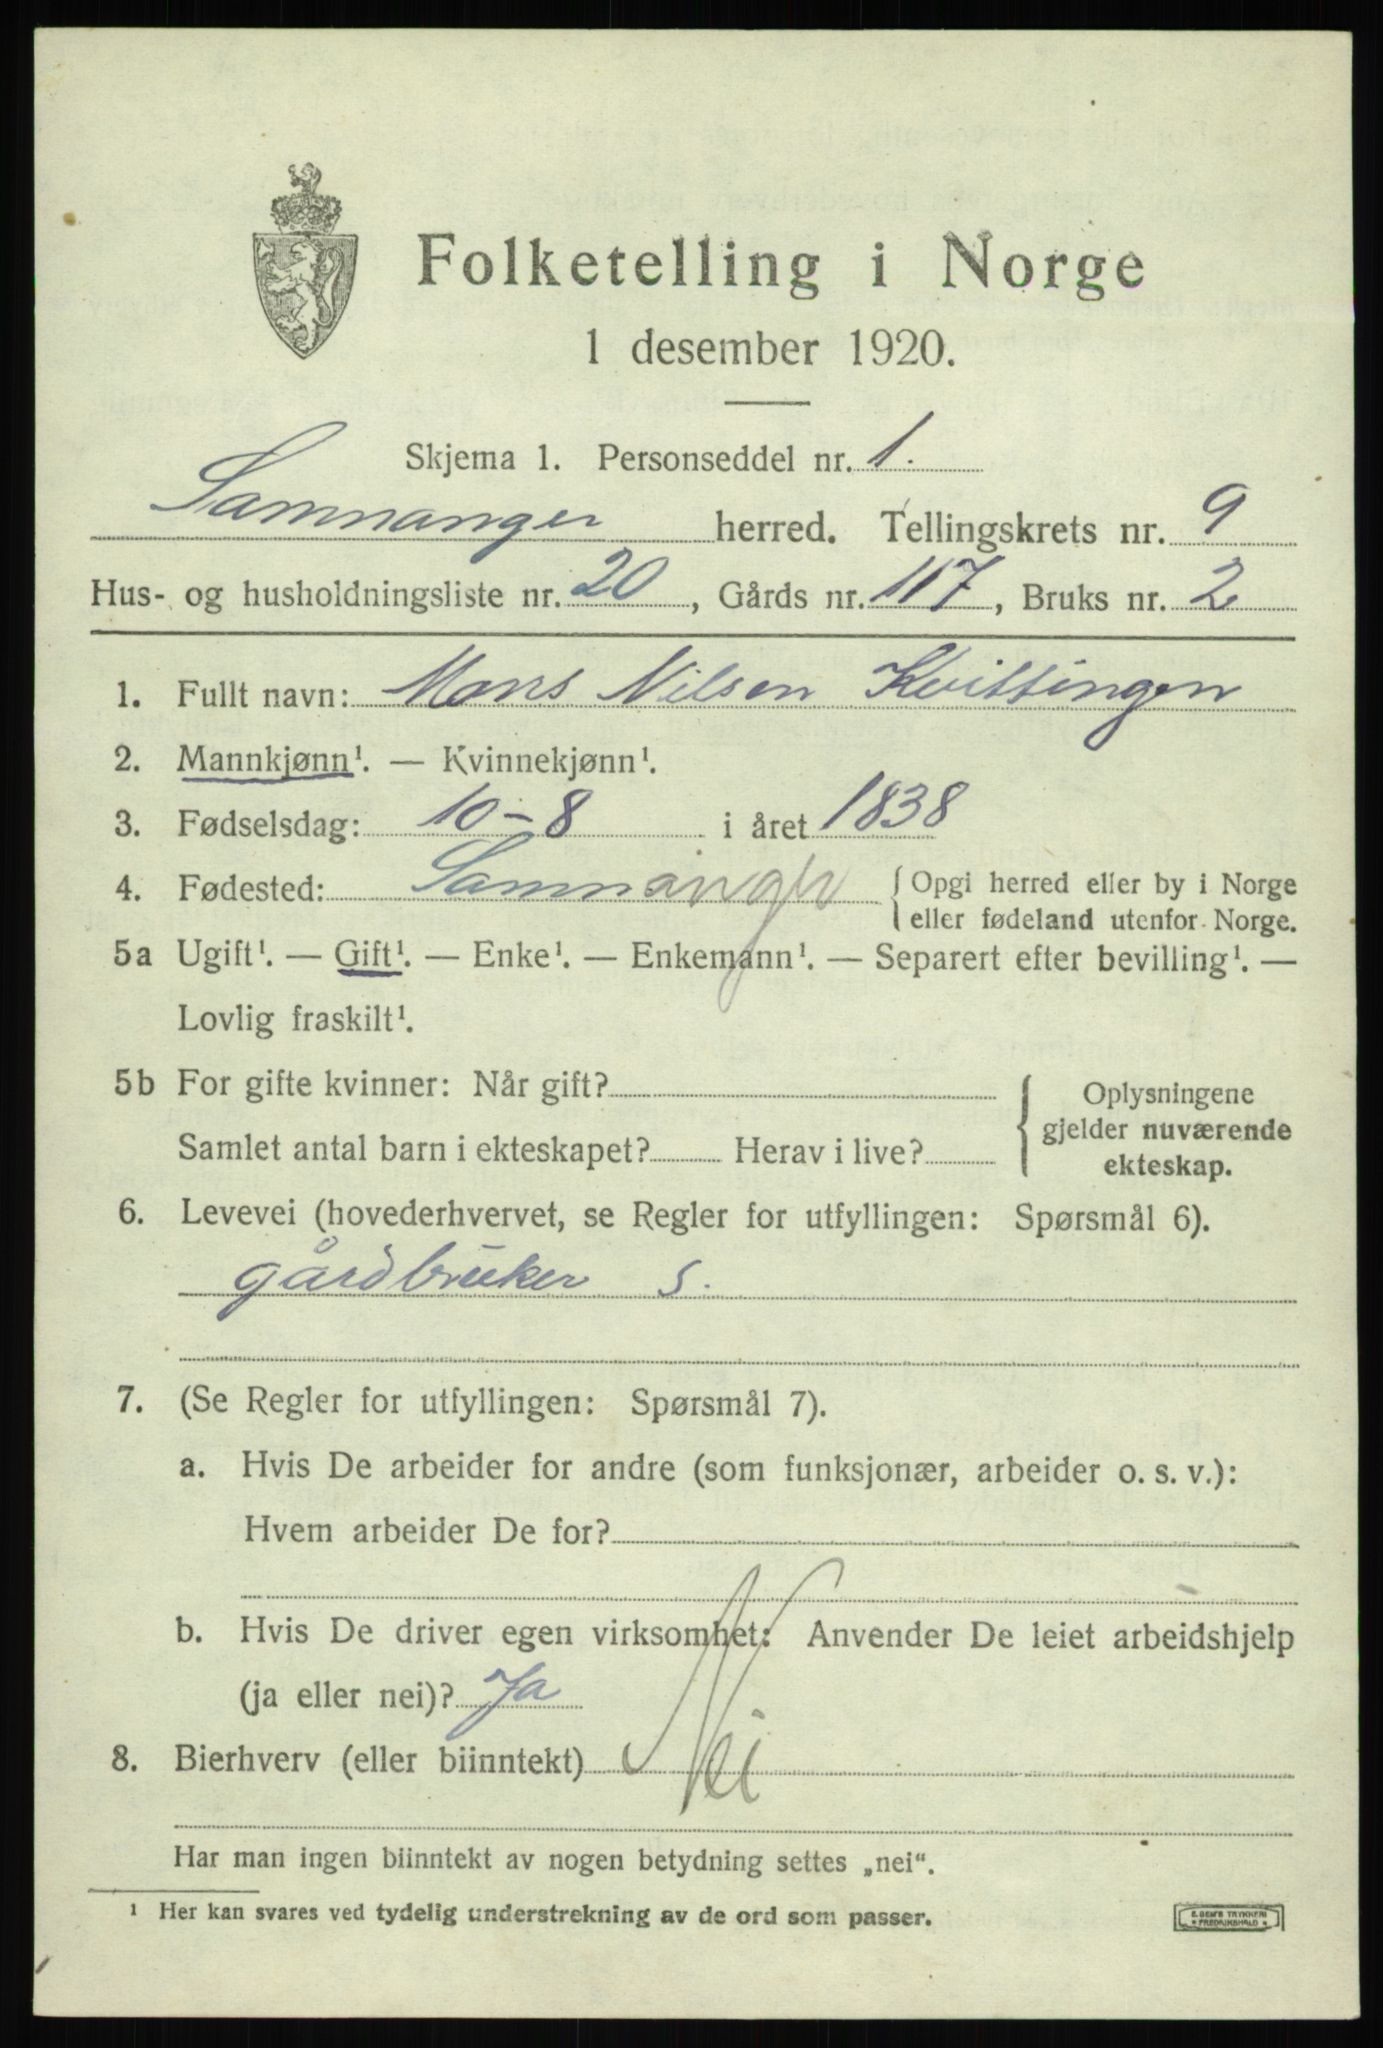 Folketelling i Norge
1 desember 1920.
Skjema 1. Personseddel nr. 1.
Samnanger herred. Tellingskrets nr. 9
Hus- og husholdningsliste nr. 20, Gårds nr. 117, Bruks nr. 2
1. Fullt navn: Mons Nilsen Kvittingen
2. Mannkjønn¹. — Kvinnekjønn¹.
3. Fødselsdag: 10-8 i året 1838
4. Fødested: Samnanger { Opgi herred eller by i Norge
eller fødeland utenfor Norge.
5a Ugift¹. — Gift¹. — Enke¹. — Enkemann¹. — Separert efter bevilling¹. —
Lovlig fraskilt¹.
5b For gifte kvinner: Når gift?
Samlet antal barn i ekteskapet? Herav i live?
{ Oplysningene
gjelder nuværende
ekteskap.
6. Levevei (hovederhvervet, se Regler for utfyllingen: Spørsmål 6).
gårdbruker s.
7. (Se Regler for utfyllingen: Spørsmål 7).
a. Hvis De arbeider for andre (som funksjonær, arbeider o. s. v.):
Hvem arbeider De for?
b. Hvis De driver egen virksomhet: Anvender De leiet arbeidshjelp
(ja eller nei)? Ja
8. Bierhverv (eller biinntekt) Nei
Har man ingen biinntekt av nogen betydning settes „nei“.
¹ Her kan svares ved tydelig understrekning av de ord som passer.
E. SEM'S TRYKKERI
* FREDRIKSHALD *